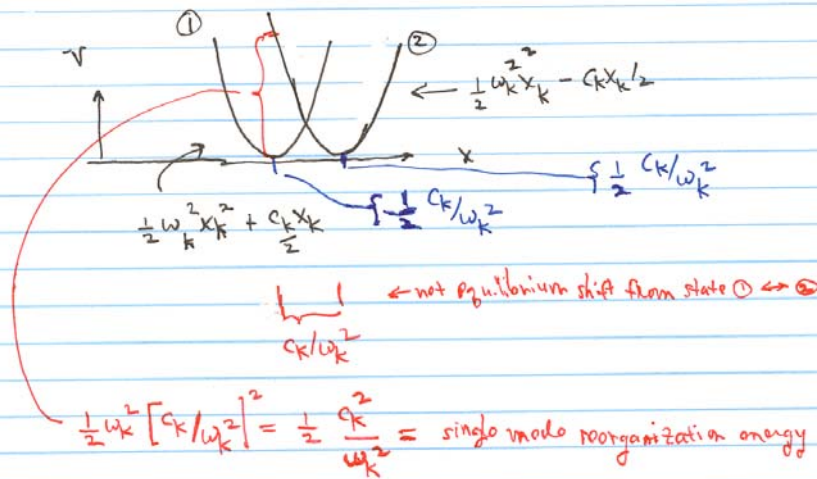 ① ②
V
½ ω_k² x_k² - C_k x_k/2
x
½ C_k/ω_k²
½ ω_k² x_k² + C_k x_k/2
-½ C_k/ω_k²
← net equilibrium shift from state ① ↔ ②
C_k/ω_k²
½ ω_k² [C_k/ω_k²]² = ½ C_k²/ω_k² = single mode reorganization energy